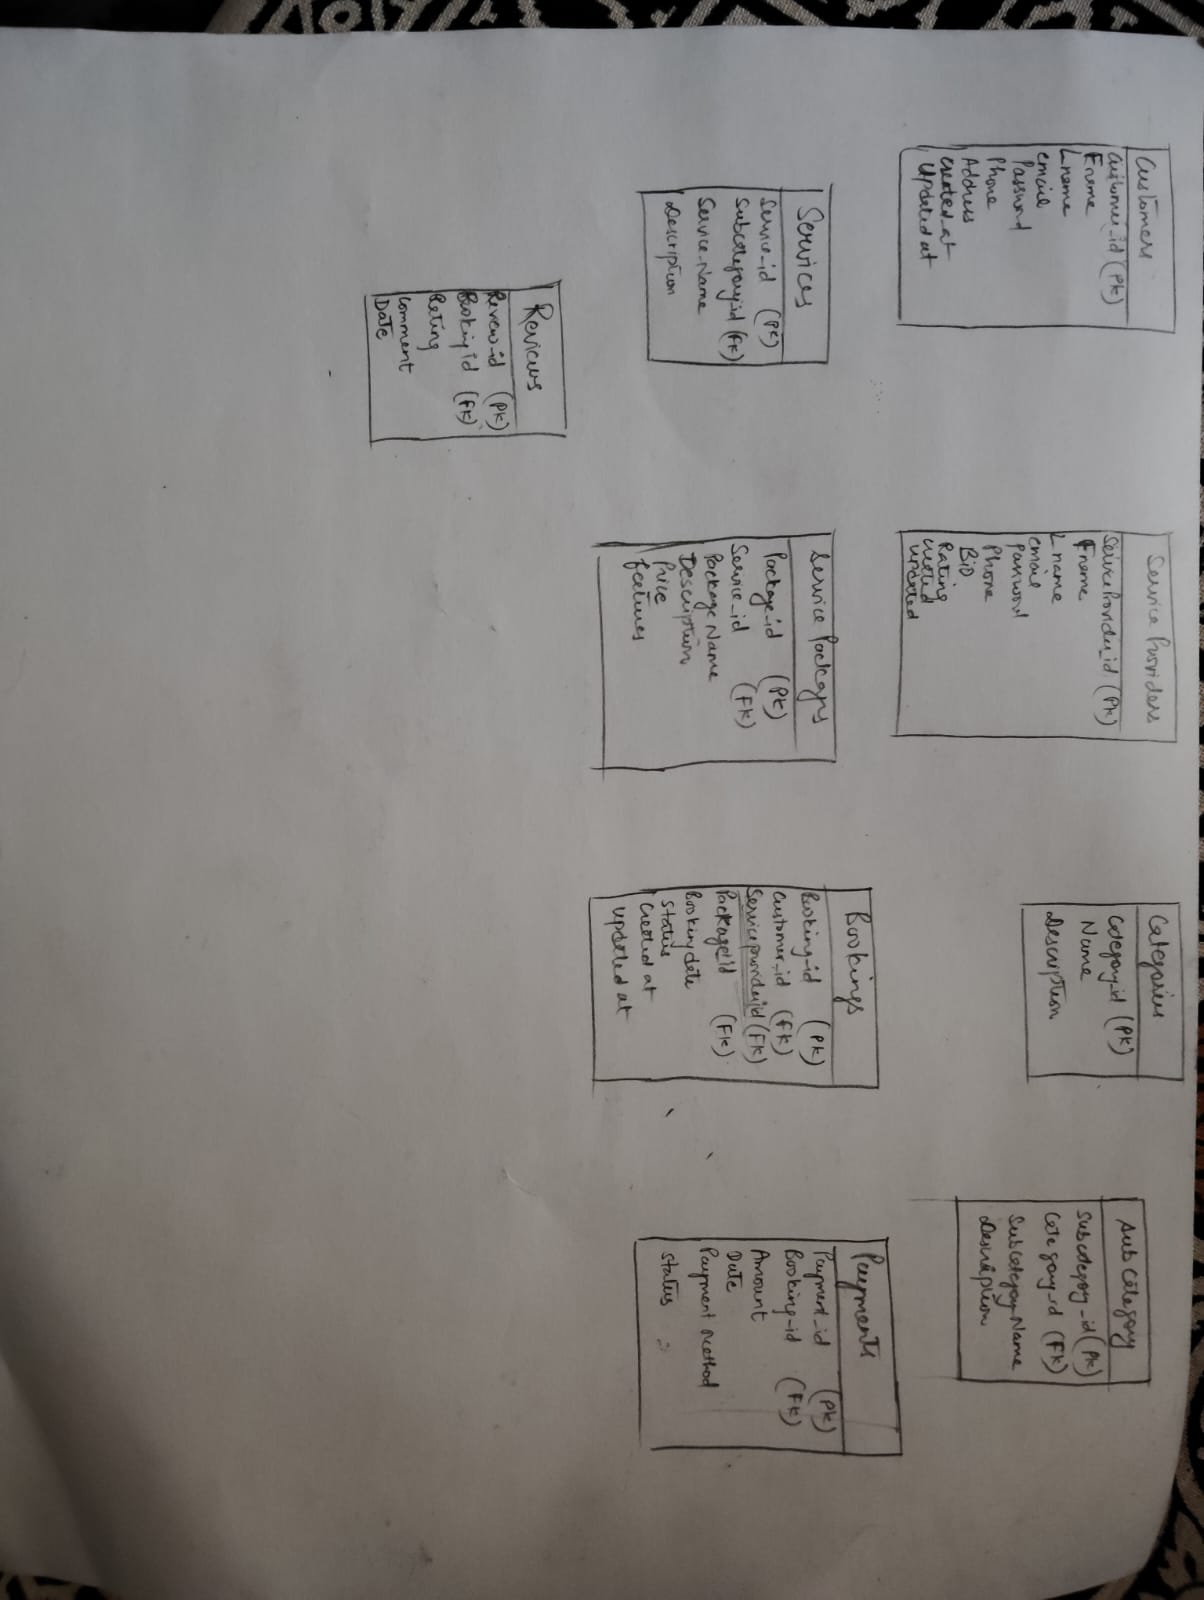 Customers
Customer_id (PK)
Fname
Lname
email
Password
Phone
Address
created_at
Updated at
Service Providers
ServiceProvider_id (PK)
Fname
Lname
email
password
Phone
BiO
Rating
created
updated
Categories
Category_id (PK)
Name
Description
Sub Category
Subcategory_id (PK)
Category_id (FK)
SubCategory Name
Description
Services
Service_id (PK)
Subcategory_id (FK)
Service Name
Description
Service Packages
Package_id (PK)
Service_id (FK)
Package Name
Description
Price
features
Bookings
Booking_id (PK)
Customer_id (FK)
Serviceprovider_id (FK)
Package_id (FK)
Booking date
Status
Created at
updated at
Payments
Payment_id (PK)
Booking_id (FK)
Amount
Date
Payment method
status
Reviews
Review_id (PK)
Booking id (FK)
Rating
comment
Date